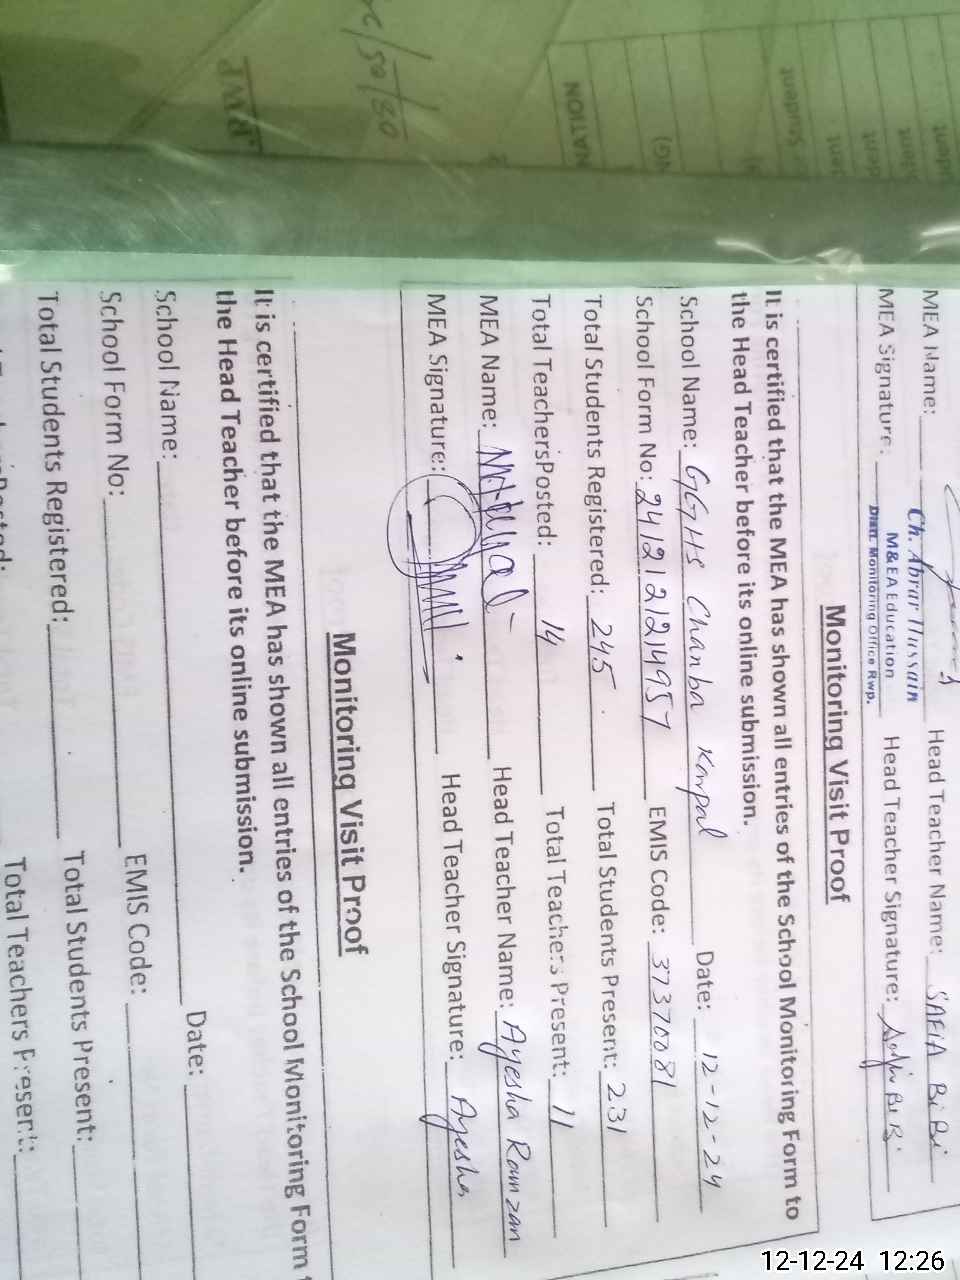 MEA Name:
Ch. Abrar Hussain
Head Teacher Name: SAFIA BiBi
MEA Signature:
M&EA Education
Distt. Monitoring Office Rwp.
Head Teacher Signature:
Monitoring Visit Proof
It is certified that the MEA has shown all entries of the School Monitoring Form to
the Head Teacher before its online submission.
School Name: GGHS Chanba Karpal Date: 12-12-24
School Form No: 2412121214957 EMIS Code: 37370081
Total Students Registered: 245 Total Students Present: 231
Total TeachersPosted: 14 Total Teachers Present: 11
MEA Name: Head Teacher Name: Ayesha Ramzan
MEA Signature: Head Teacher Signature: Ayesha
Monitoring Visit Proof
It is certified that the MEA has shown all entries of the School Monitoring Form
the Head Teacher before its online submission.
School Name: Date:
School Form No: EMIS Code:
Total Students Registered: Total Students Present:
Total Teachers Present:
12-12-24 12:26